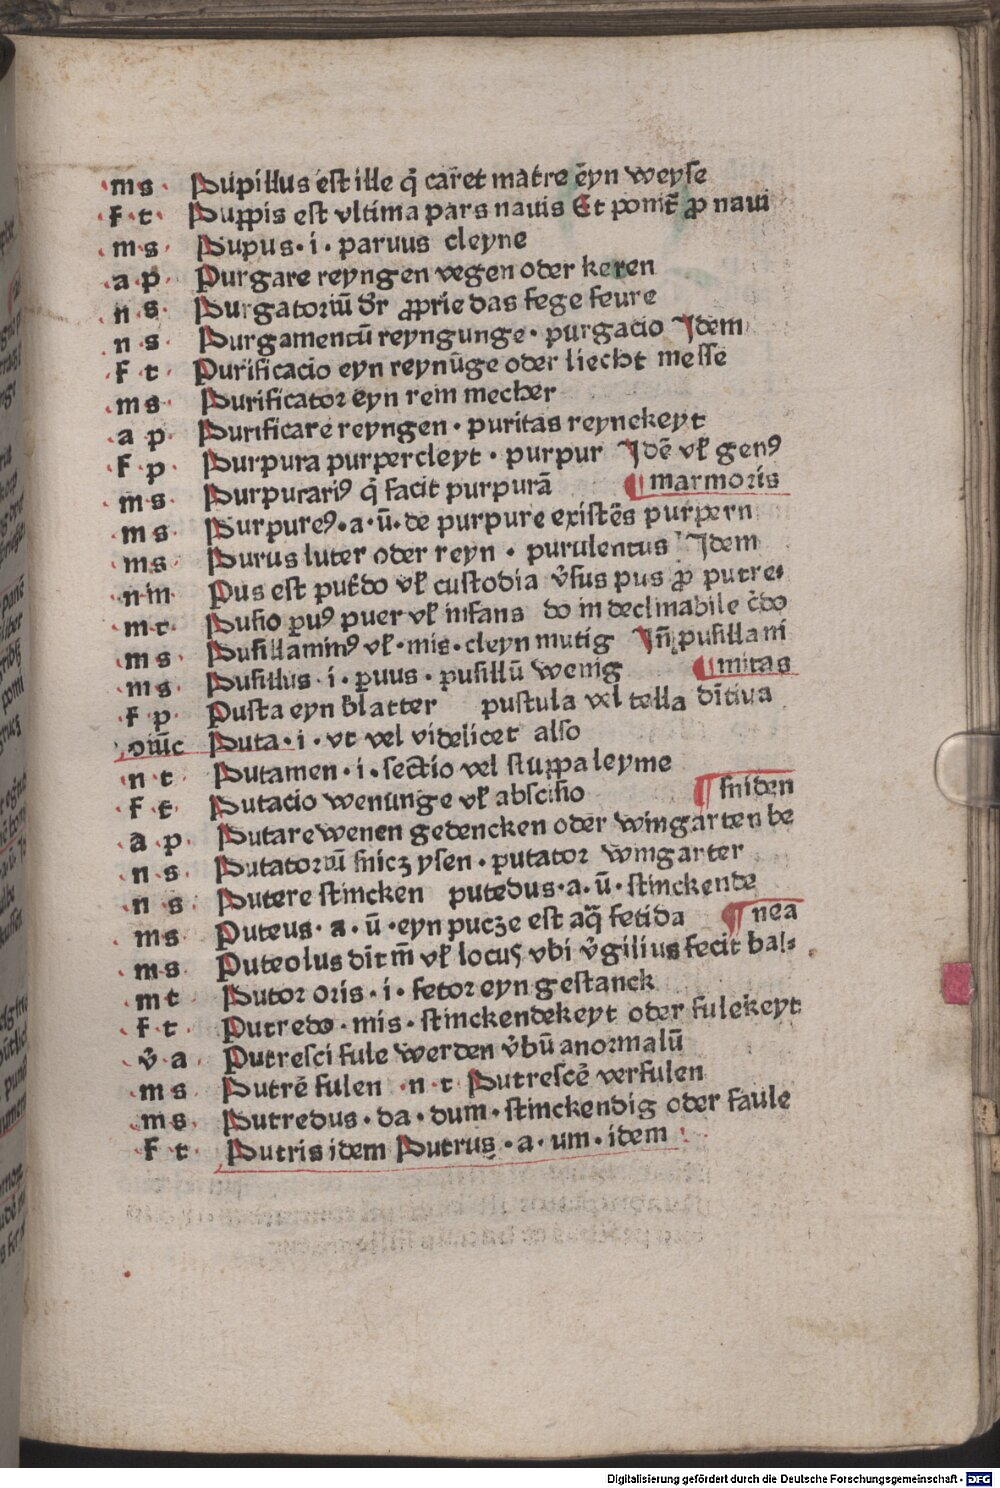 m s Pupillus est ille q̄ caret matre eyn weyse
f t Puppis est vltima pars nauis Et ponit̄ ꝓ naui
m s Pupus · i · paruus cleyne
a p Purgare reyngen vegen oder keren
n s Purgatoriū dr̄ ꝓprie das fege feure
n s Purgamentū reyngunge · purgacio Idem
f t Purificacio eyn reynūge oder liecht messe
m s Purificator eyn rein mecher
a p Purificare reyngen · puritas reynckeyt
f p Purpura purpercleyt · purpur Idē vl̄ genꝰ
m s Purpurariꝰ q̄ facit purpurā ¶ marmoris
m s Purpureꝰ · a · ū · de purpure existēs purpern
m s Purus luter oder reyn · purulentus Idem
n m Pus est putdo vl̄ custodia v̄sus pus ꝓ putre-
m t Pusio ꝑuꝰ puer vl̄ infans do indeclinabile c̄do
m s Pusillanimꝰ vl̄ · mis · cleyn mutig In̄ pusillani
m s Pusillus · i · ꝑuus · pusillū wenig ¶ mitas
f p Pusta eyn blatter pustula vel tella dītiua
oiūc Puta · i · vt vel videlicet also
n t Putamen · i · sectio vel stuppa leyme
f t Putacio wenunge vl̄ abscisio ¶ sniden
a p Putare wenen gedencken oder wingarten be
n s Putatoriū snicz ysen · putator wingarter
n s Putere stincken putedus · a · ū · stinckende
m s Puteus · a · ū · eyn pucze est aq̄ fetida ¶ nea
m s Puteolus dit m̄ vl̄ locus vbi v̄gilius fecit bal-
m t Putor oris · i · fetor eyn gestanck
f t Putredo · mis · stinckendekeyt oder fulekeyt
v̄ a Putresci fule werden v̄bū anormalū
m s Putrē fulen n t Putrescē verfulen
m s Putredus · da · dum · stinckendig oder faule
f t Putris idem Putrus · a · um · idem
Digitalisierung gefördert durch die Deutsche Forschungsgemeinschaft - DFG